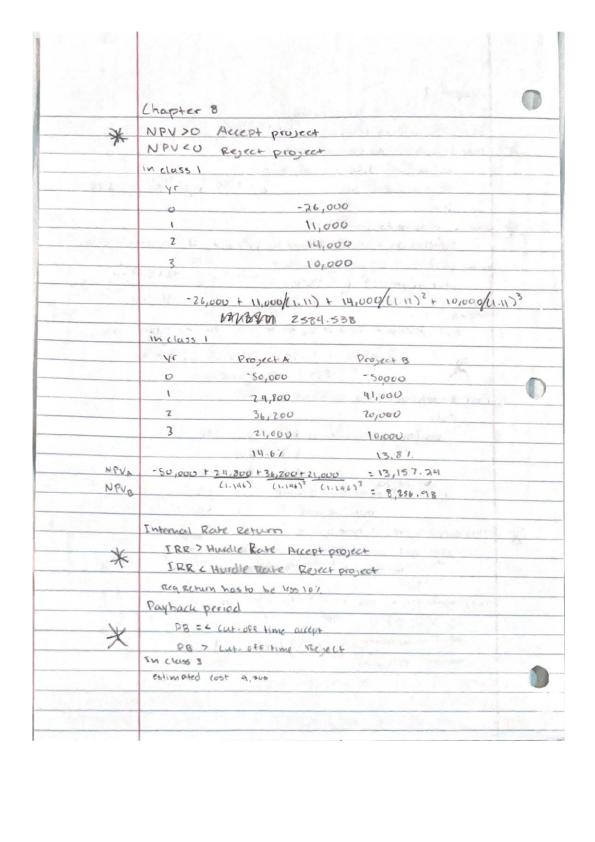 Chapter 8
NPV >0 Accept project
NPV <0 Reject project
in class 1
yr
0 -26,000
1 11,000
2 14,000
3 10,000
-26,000 + 11,000/(1.11) + 14,000/(1.11)² + 10,000/(1.11)³
2584.538
in class 1
Yr Project A Project B
0 -50,000 -50000
1 24,800 41,000
2 36,200 20,000
3 21,000 10,000
14.6% 13.8%
NPVA -50,000 + 24,800 + 36,200 + 21,000 = 13,157.24
(1.146) (1.146)² (1.146)³
NPVB = 8,256.98
Internal Rate Return
IRR > Hurdle Rate Accept project
IRR < Hurdle Rate Reject project
Req Return has to be less 10%
Payback period
PB =< cut-off time accept
PB > cut-off time Reject
In class 3
estimated cost